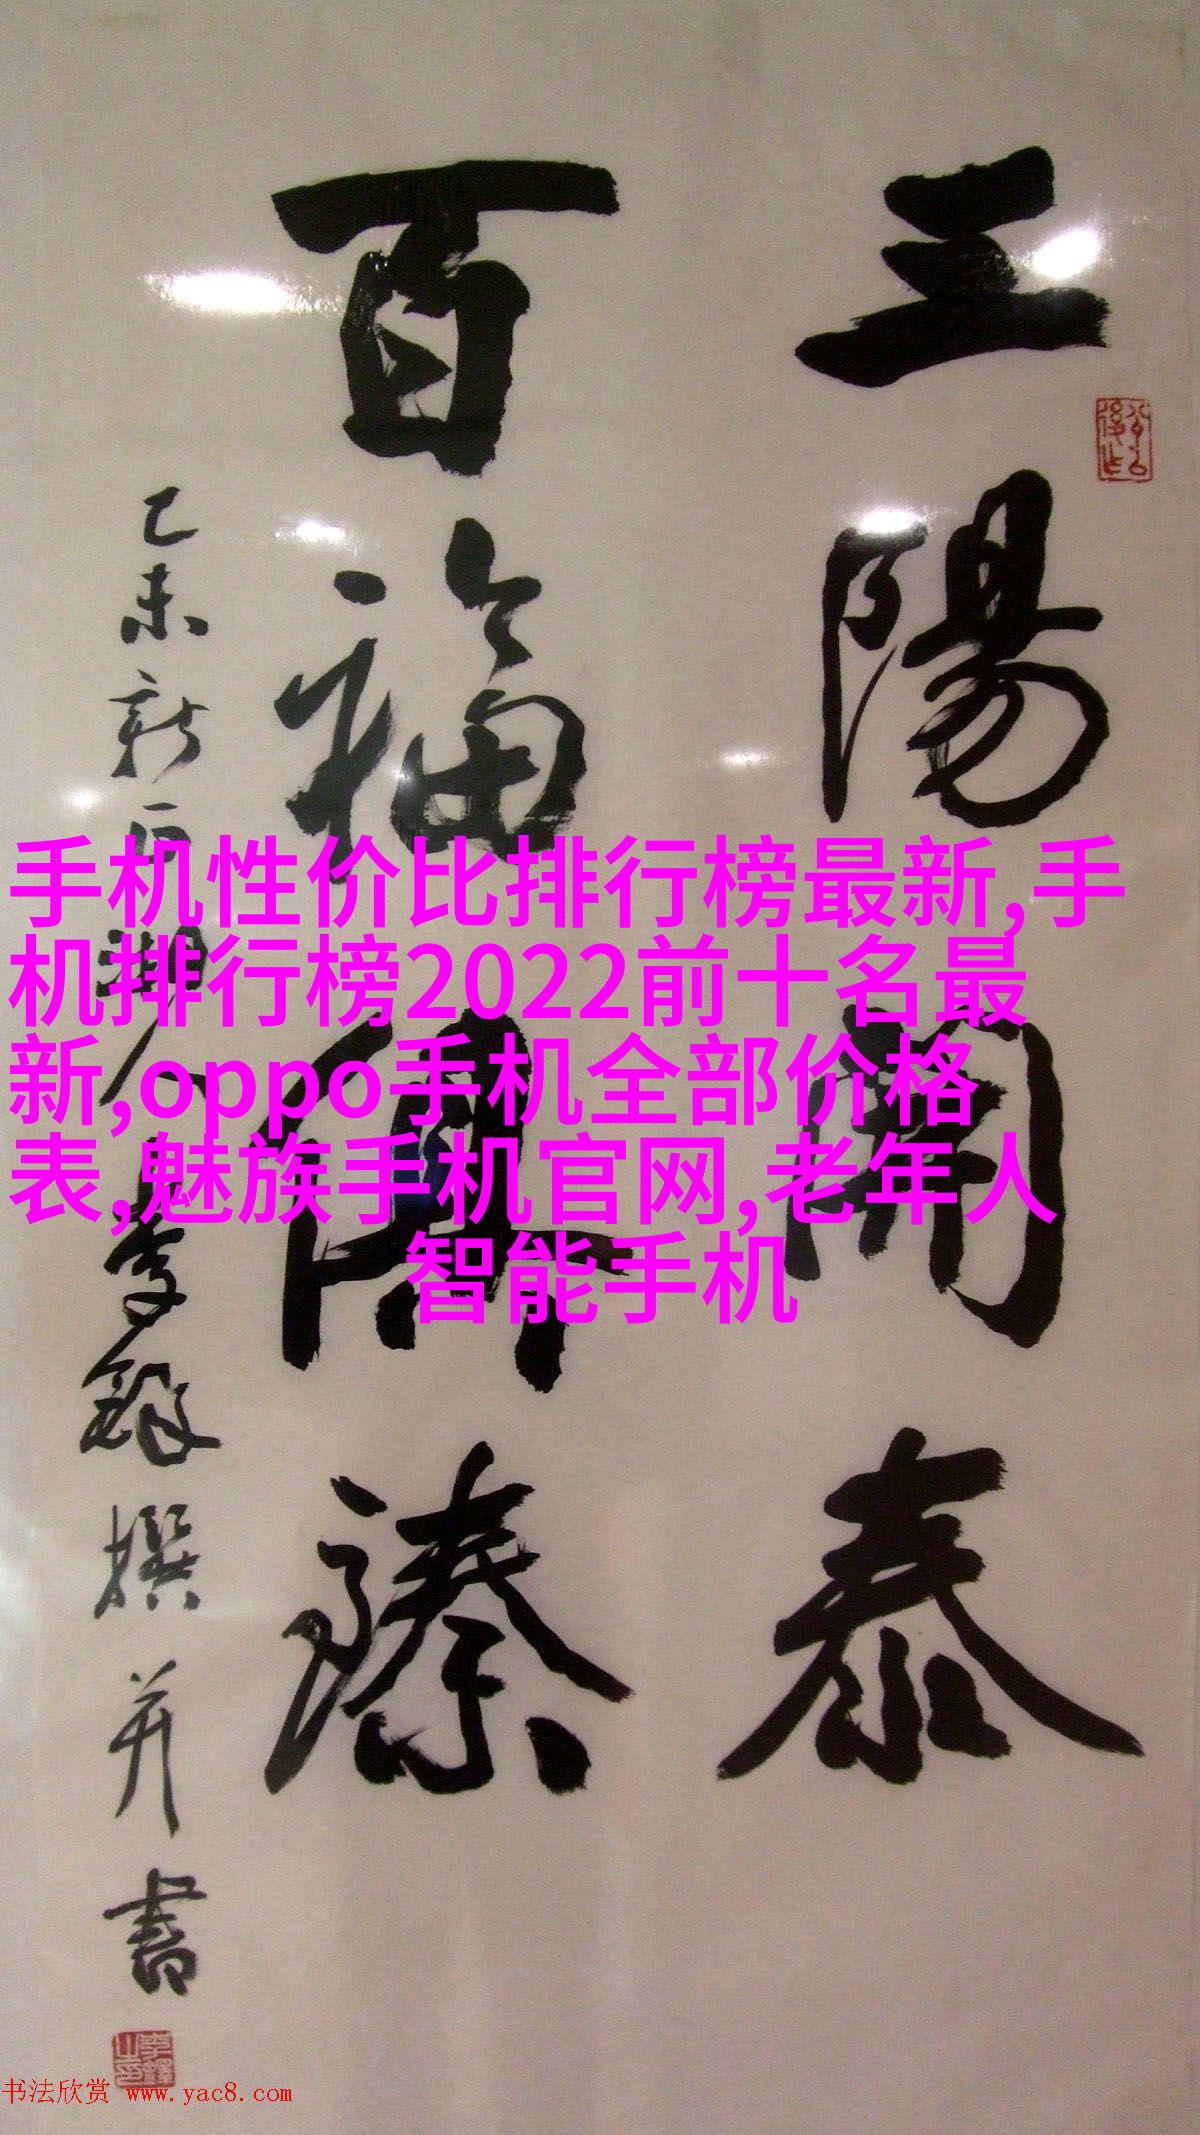 三陽開泰
百福俱臻
乙未新正湖人李鐸撰并書
手机性价比排行榜最新,手
机排行榜2022前十名最
新,oppo手机全部价格
表,魅族手机官网,老年人
智能手机
书法欣赏 www.yac8.com